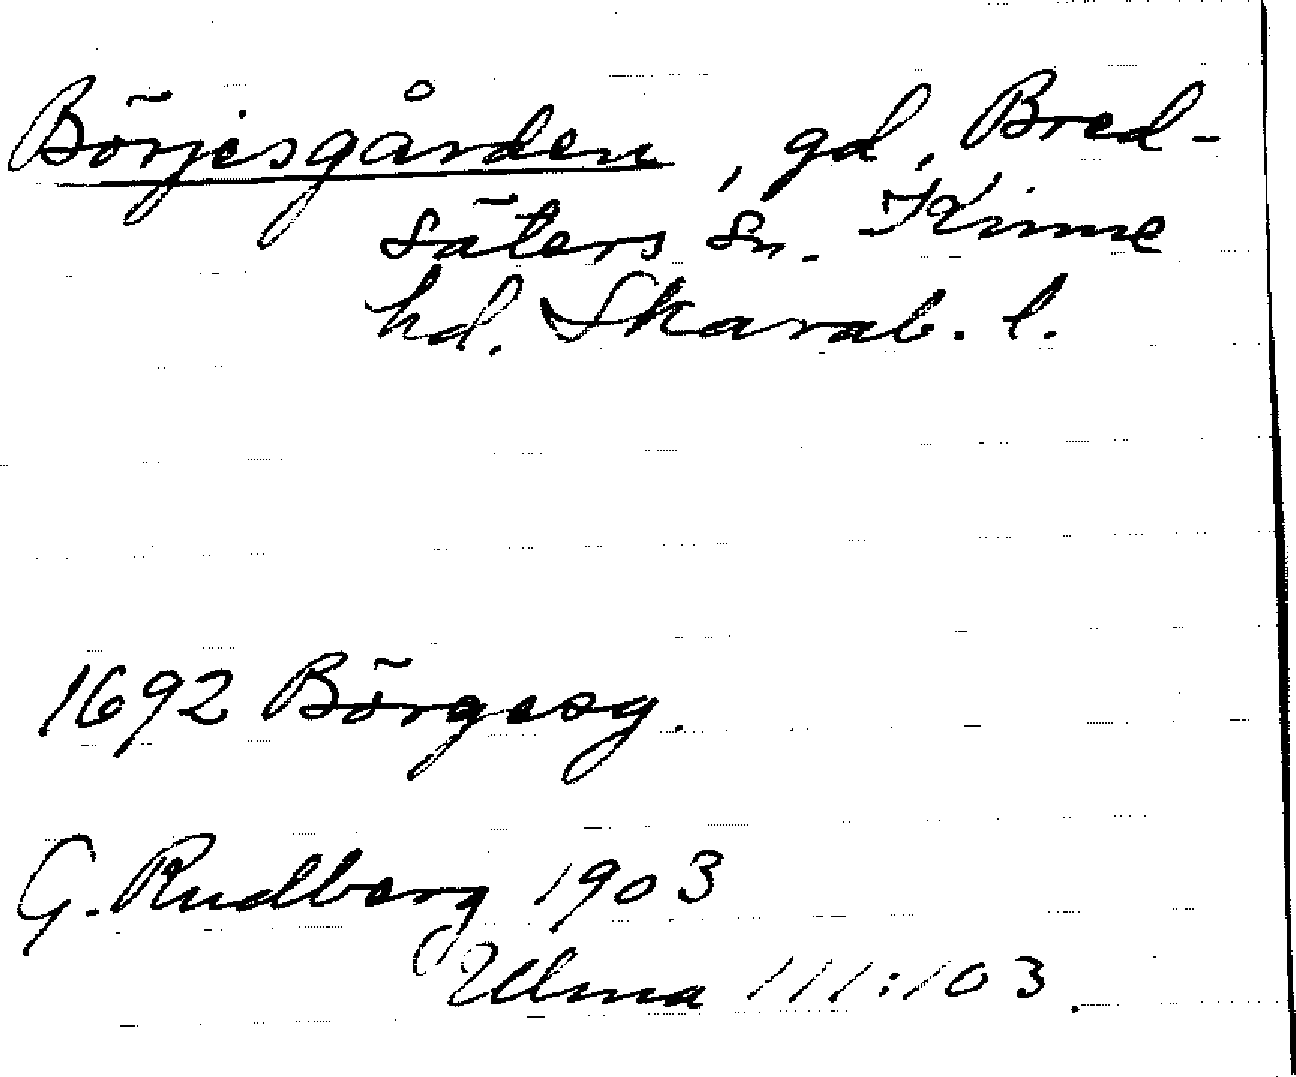 Börjesgården, gd, Bred-
säters sn. Kinne
hd. Skarab. l.
1692 Börgesg.
G. Rudberg 1903
Ulma 111:103.